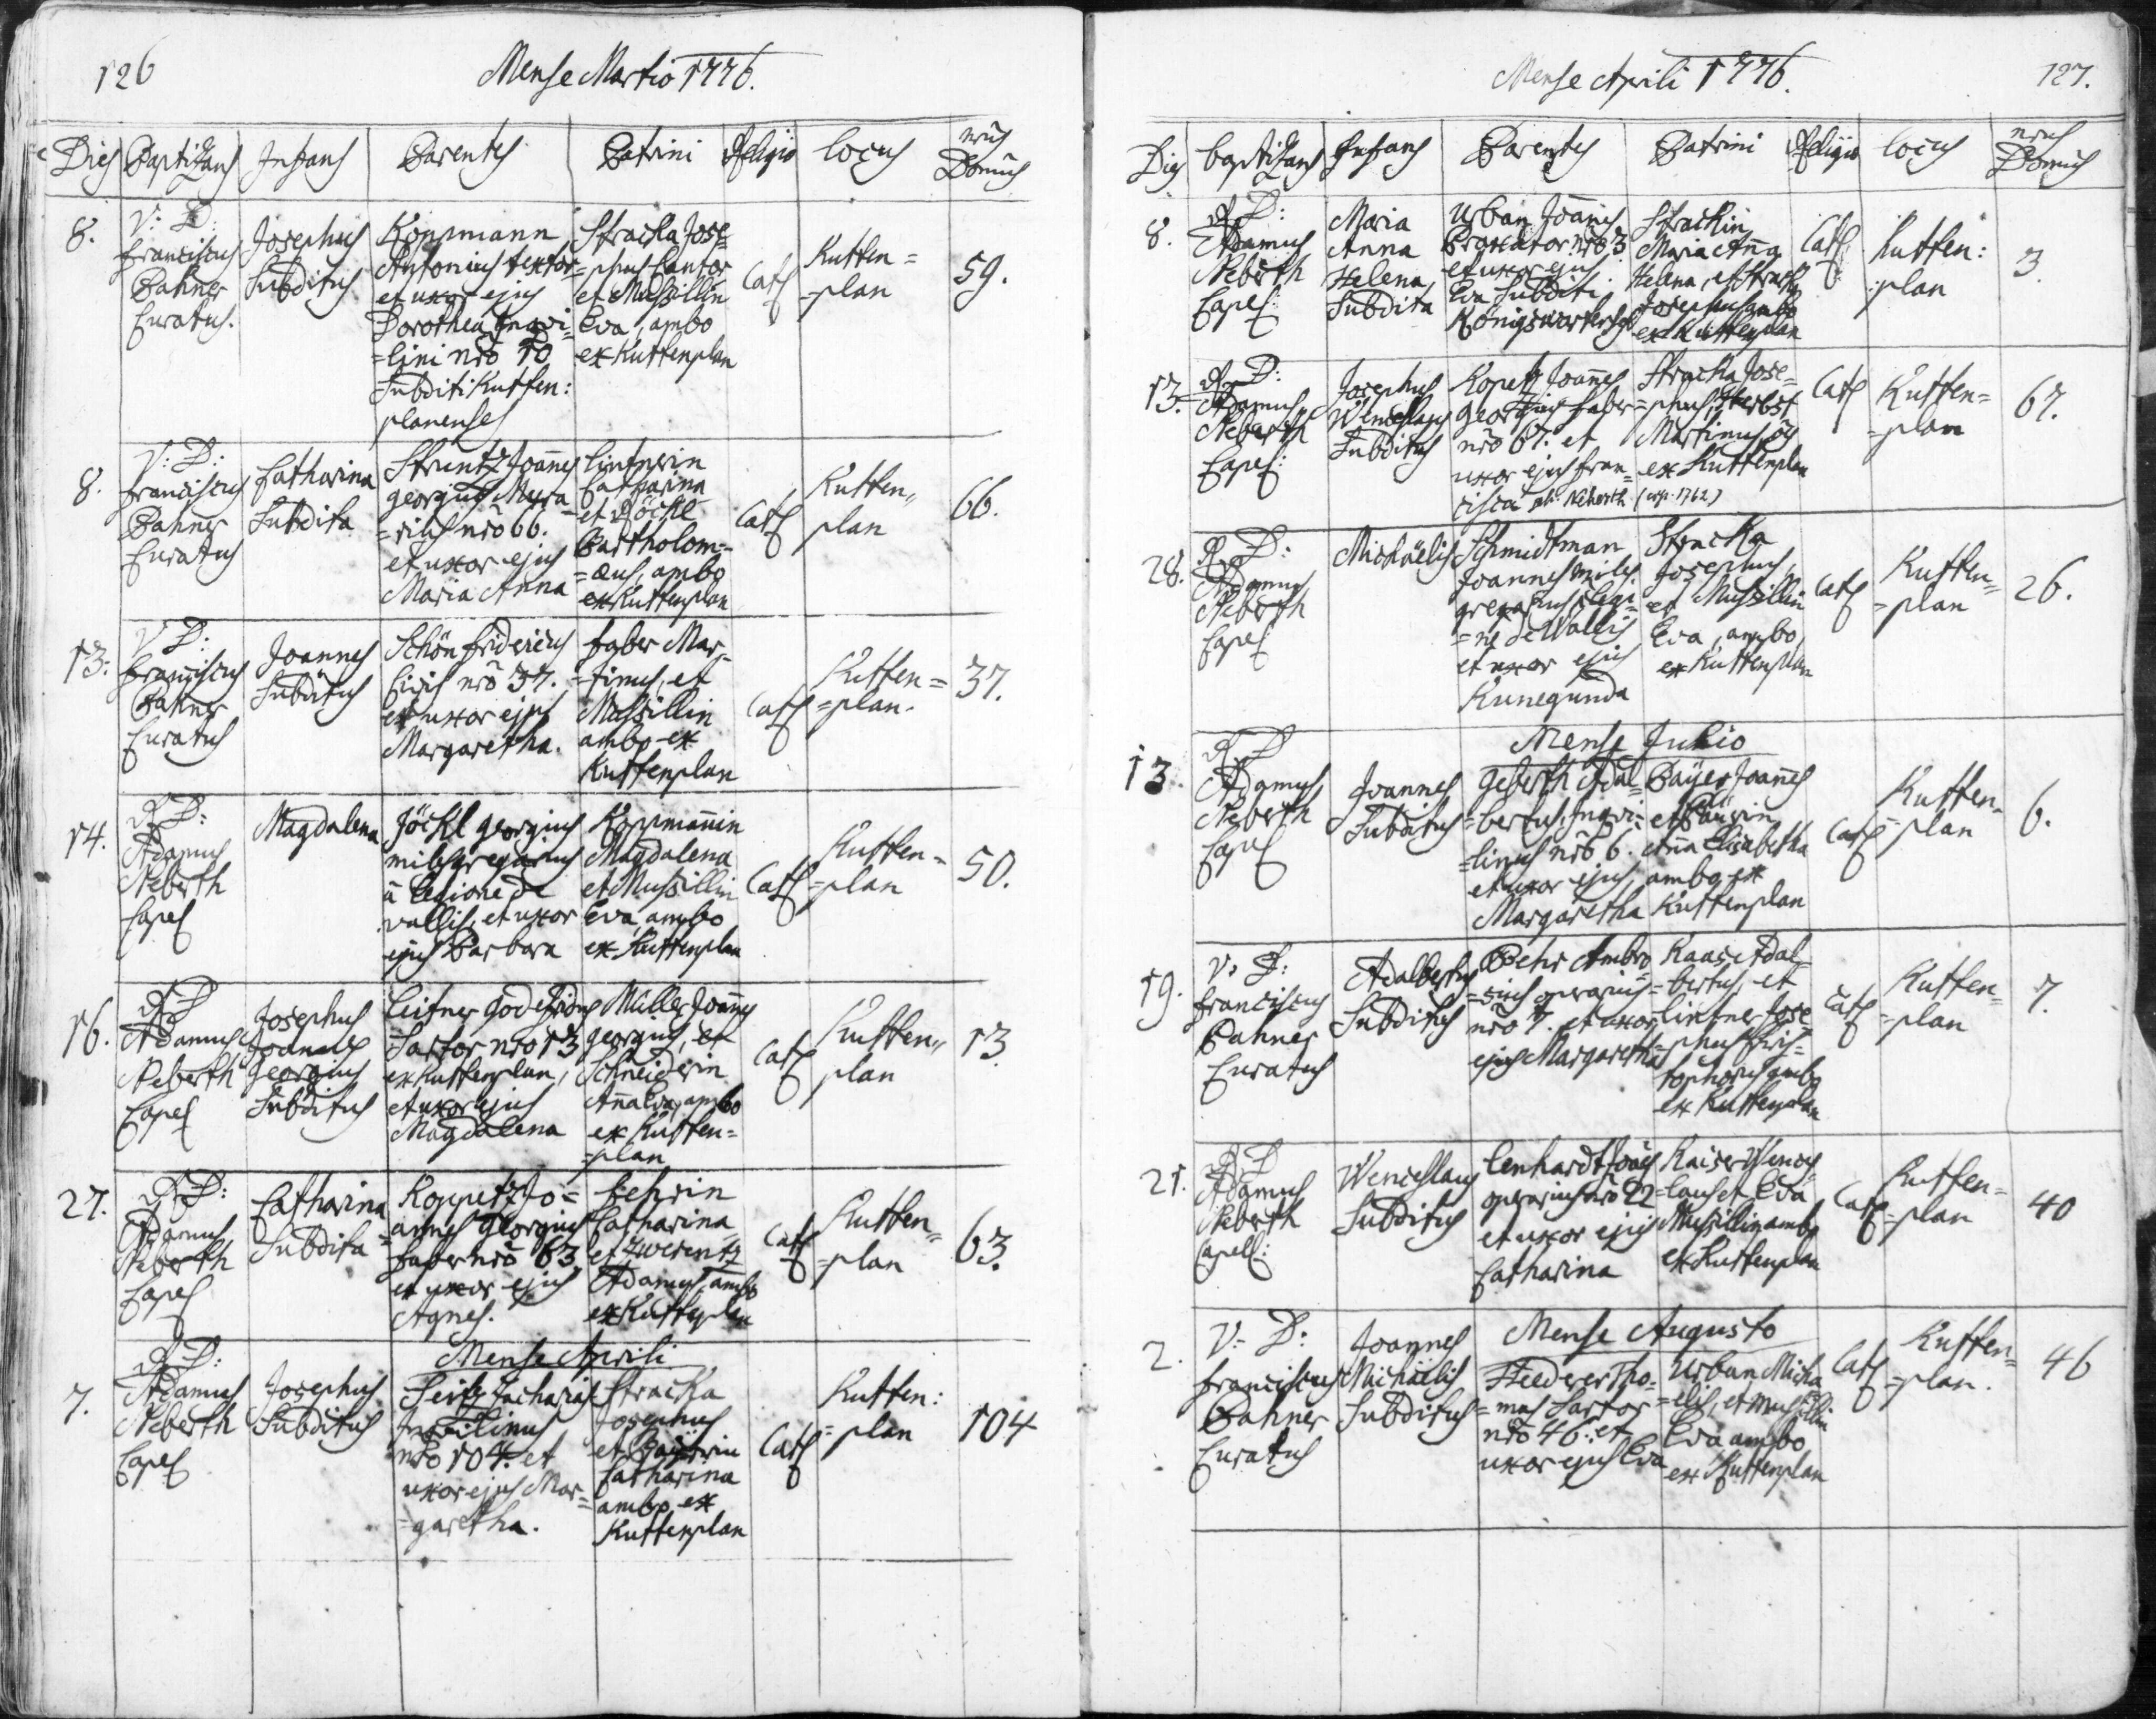 126
Mense Martio 1776.
Dies Baptizans Infans Parentes Patrini Religio locus nrus Domus
8.
V: D:
Franciscus
Pahner
Curatus.
Josephus
Subditus
Koppmann
Antonius textor
et uxor ejus
Dorothea Inqui=
=lini nrõ 10
Subditi Kutten:
planenses
Stracka Jose=
=phus Cantor
et Mussillin
Eva, ambo
ex Kuttenplan
Cath
Kutten=
=plan
59.
8.
V: D:
Franciscus
Pahner
Curatus
Catharina
Subdita
Struntz Joañes
georgius Mura=
=rius nrõ 66.
et uxor ejus
Maria Anna
Lintnerin
Catharina
et Jöckl
Bartholom=
=æus, ambo
ex Kuttenplan
Cath
Kutten=
plan
66.
13.
V D:
Franciscus
Pahner
Curatus
Joannes
Subditus
Schön Fridericus
Civis nrõ 37.
et uxor ejus
Margaretha.
Faber Mar=
=tinus, et
Mussillin
ambo ex
Kuttenplan
Cath
Kutten=
=plan.
37.
14.
R D:
Adamus
Neberth
Capel
Magdalena
Jöckl georgius
miles gregarius
ã Legione de
vallis, et uxor
ejus Barbara
Koppmañin
Magdalena
et Mussillin
Eva, ambo
ex Kuttenplan
Cath
Kutten=
=plan
50.
16.
R D
Adamus
Neberth
Capel
Josephus
Joannes
Georgius
Subditus
Leitner Godefridus
Sartor nrõ 13
ex Kuttenplan,
et uxor ejus
Magdalena
Müller Joañes
georgius, et
Schneiderin
Aña Eva, ambo
ex Kutten=
=plan
Cath
Kutten=
plan
13
27.
R D:
Adamus
Neberth
Capel
Catharina
Subdita
Koppetz Jo=
=annes Georgius
Faber nrõ 63.
et uxor ejus
Agnes.
Fehrin
Catharina
et Zwerentz
Adamus, ambo
ex Kuttenplan
Cath
Kutten=
=plan
63.
Mense Aprili
7.
R D:
Adamus
Neberth
Capel
Josephus
Subditus
Seitz Zacharias
Inquilinus
nrõ 104. et
uxor ejus Mar=
=garetha.
Stracka
Josephus
et Bayerin
Catharina
ambo ex
Kuttenplan
Cath
Kutten:
=plan
104
Mense Aprili 1776.
127.
Dies baptizans Infans Parentes Patrini Religio locus nrus Domus
8.
R D:
Adamus
Neberth
Capel:
Maria
Anna
Helena
Subdita
Urban Joañes
Braxator nrõ 3
et uxor ejus
Eva Subditi
Strackin
Maria Aña
Helena, et Stracka
Josephus ambo
ex Kuttenplan
Cath
Kutten:
:plan
3
13.
R D:
Adamus
Neberth
Capel:
Josephus
Wenceslaus
Subditus
Kopetz Joañes
Georgius Faber
nrõ 67. et
uxor ejus Fran=
cisca nb. Neberth (cop. 1762)
Stracka Jose=
=phus, Herbst
Martinus, ões
ex Kuttenplan
Cath
Kutten=
=plan
67.
28.
R D:
Adamus
Neberth
Capel
Michäelis
Schmidtman
Joannes miles
gregarius Legi=
=ne de Wallis
et uxor ejus
Kunegunda
Stracka
Josephus,
et Mussillin
Eva, ambo
ex Kuttenplan
Cath
Kutten=
=plan
26.
Mense Julio
13
R D
Adamus
Neberth
Capel
Joannes
Subditus
Geberth Adal=
=bertus, Inqui=
=linus nrõ 6.
et uxor ejus
Margaretha
Bayer Joañes
et
Aña Elisabetha
ambo ex
Kuttenplan
Cath
Kutten=
=plan
6.
19.
V: D:
Franciscus
Pahner
Curatus
Adalbertus
Subditus
Behr Ambro
=sius operarius
nrõ 7. et uxor
ejus Margaretha
Kaas Adal=
=bertus, et
Lintner Jose
=phus Chris=
tophorus ambo
ex Kuttenplan
Cath
Kutten=
=plan
7.
21.
R D
Adamus
Neberth
Capell:
Wenceslaus
Subditus
Lenhardt Joães
operarius nrõ 22
et uxor ejus
Catharina
Kaiser Wences
=laus et Eva
Mussillin ambo
ex Kuttenplan
Cath
Kutten=
=plan
40
Mense Augusto
2.
V: D:
Franciscus
Pahner
Curatus
Joannes
Michäelis
Subditus
Heederer Tho=
=mas Sartor
nrõ 46. et
uxor ejus Eva
Urban Micha
=elis, et Mussillin
Eva ambo
ex Kuttenplan
Cath
Kutten=
=plan.
46